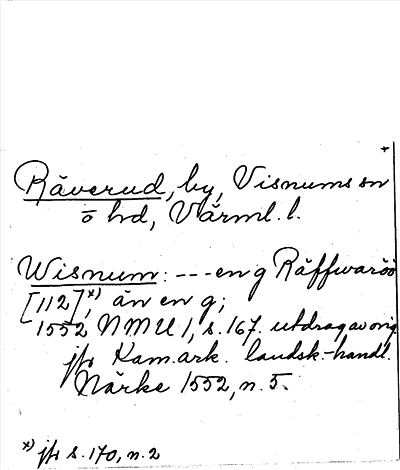 +
Räverud, by, Visnums sn
ö hd, Värml. l.
Wisnum: --- en g Räffwaröö
[112],*) än en g;
1552 NMU 1, s. 167. utdrag av orig.
jfr Kam.ark. landsk.-handl.
Närke 1552, n. 5.
*) jfr s. 170, n. 2